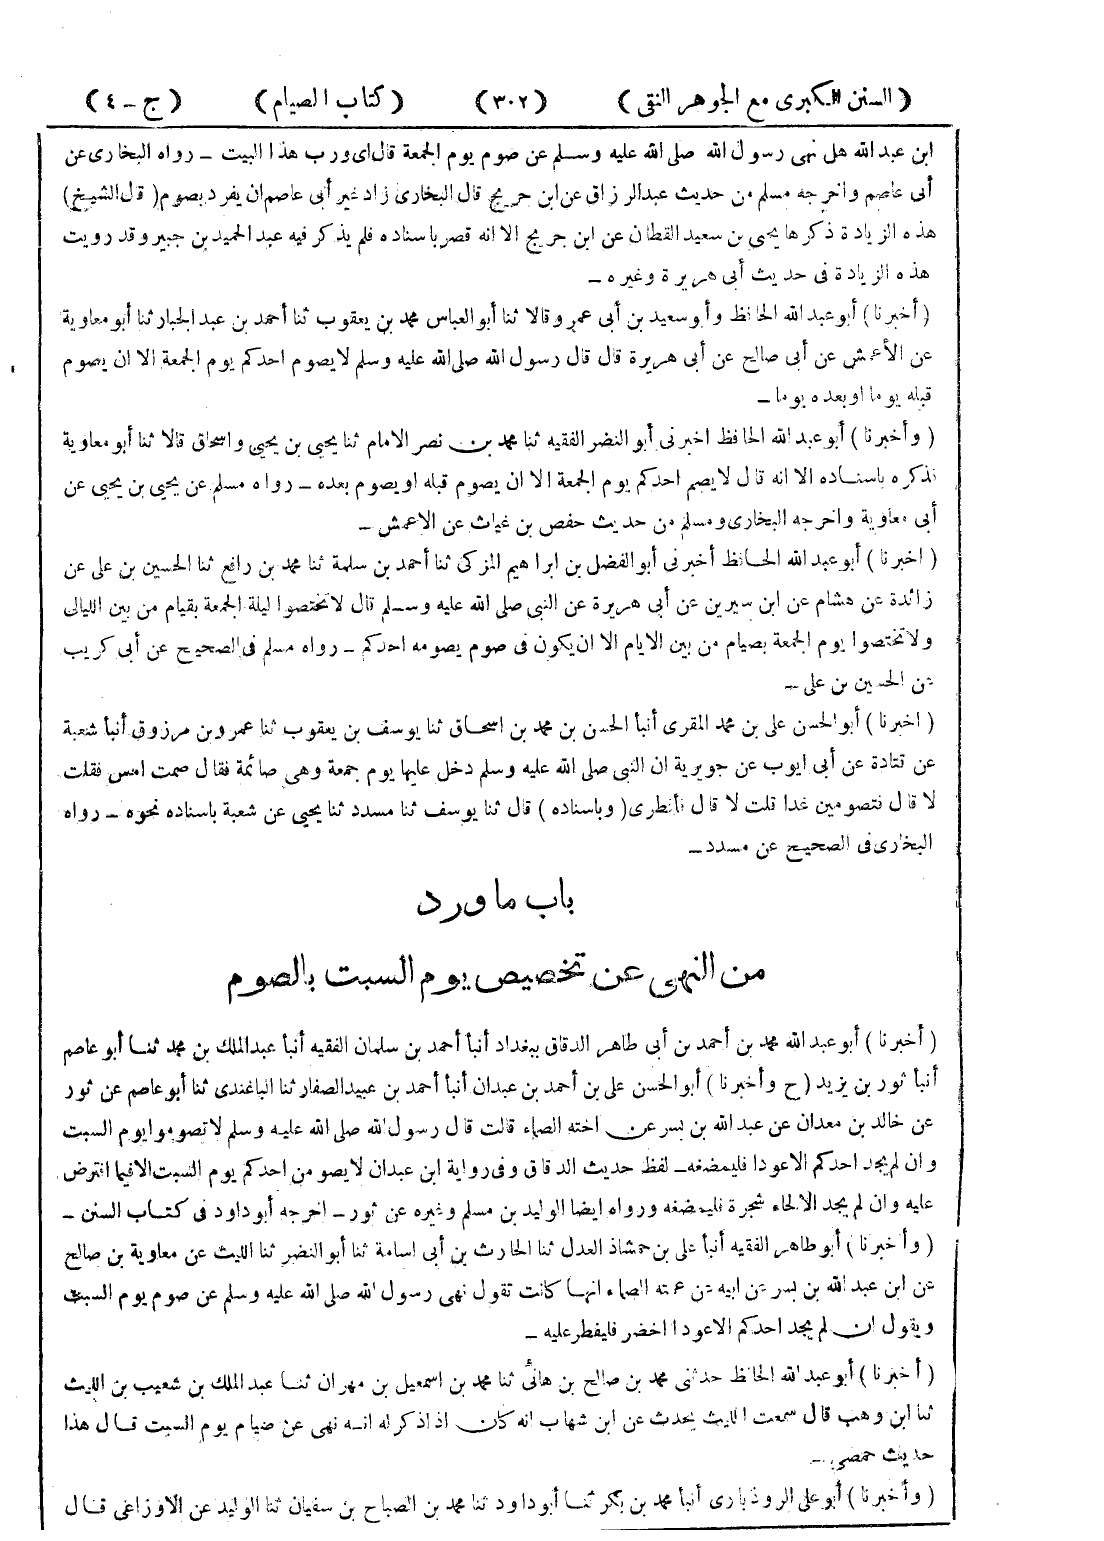 ( السنن الكبرى مع الجوهر النقى ) ( ٣٠٢ ) ( كتاب الصيام ) ( ج - ٤ )
ابن عبد الله هل نهى رسول الله صلى الله عليه وسلم عن صوم يوم الجمعة قال اى ورب هذا البيت - رواه البخارى عن
أبى عاصم واخرجه مسلم من حديث عبد الرزاق عن ابن جريج قال البخارى زاد غير أبى عاصم ان يفرد بصوم ( قال الشيخ )
هذه الزيادة ذكرها يحيى بن سعيد القطان عن ابن جريج الا انه قصر باسناده فلم يذكر فيه عبد الحميد بن جبير وقد رويت
هذه الزيادة فى حديث أبى هريرة وغيره -
( أخبرنا ) أبو عبد الله الحافظ وأبو سعيد بن أبى عمرو قالا ثنا أبو العباس محمد بن يعقوب ثنا أحمد بن عبد الجبار ثنا أبو معاوية
عن الأعمش عن أبى صالح عن أبى هريرة قال قال رسول الله صلى الله عليه وسلم لا يصوم احدكم يوم الجمعة الا ان يصوم
قبله يوما او بعده يوما -
( وأخبرنا ) أبو عبد الله الحافظ اخبرنى أبو النضر الفقيه ثنا محمد بن نصر الامام ثنا يحيى بن يحيى واسحاق قالا ثنا أبو معاوية
فذكره باسناده الا انه قال لا يصم احدكم يوم الجمعة الا ان يصوم قبله او يصوم بعده - رواه مسلم عن يحيى بن يحيى عن
أبى معاوية واخرجه البخارى ومسلم من حديث حفص بن غياث عن الاعمش -
( اخبرنا ) أبو عبد الله الحافظ أخبرنى أبو الفضل بن ابراهيم المزكى ثنا أحمد بن سلمة ثنا محمد بن رافع ثنا الحسين بن على عن
زائدة عن هشام عن ابن سيرين عن أبى هريرة عن النبى صلى الله عليه وسلم قال لا تختصوا ليلة الجمعة بقيام من بين الليالى
ولا تختصوا يوم الجمعة بصيام من بين الايام الا ان يكون فى صوم يصومه احدكم - رواه مسلم فى الصحيح عن أبى كريب
عن الحسين بن على -
( اخبرنا ) أبو الحسن على بن محمد المقرى أنبأ الحسن بن محمد بن اسحاق ثنا يوسف بن يعقوب ثنا عمرو بن مرزوق أنبأ شعبة
عن قتادة عن أبى ايوب عن جويرية ان النبى صلى الله عليه وسلم دخل عليها يوم جمعة وهى صائمة فقال صمت امس فقلت
لا قال فتصومين غدا قلت لا قال فأفطرى ( وباسناده ) قال ثنا يوسف ثنا مسدد ثنا يحيى عن شعبة باسناده نحوه - رواه
البخارى فى الصحيح عن مسدد -
باب ما ورد
من النهى عن تخصيص يوم السبت بالصوم
( أخبرنا ) أبو عبد الله محمد بن أحمد بن أبى طاهر الدقاق ببغداد أنبأ أحمد بن سلمان الفقيه أنبأ عبد الملك بن محمد ثنا أبو عاصم
أنبأ ثور بن يزيد ( ح وأخبرنا ) أبو الحسن على بن أحمد بن عبدان أنبأ أحمد بن عبيد الصفار ثنا الباغندى ثنا أبو عاصم عن ثور
عن خالد بن معدان عن عبد الله بن بسر عن اخته الصماء قالت قال رسول الله صلى الله عليه وسلم لا تصوموا يوم السبت
وان لم يجد احدكم الا عودا فليمضغه - لفظ حديث الدقاق وفى رواية ابن عبدان لا يصومن احدكم يوم السبت الا فيما افترض
عليه وان لم يجد الا لحاء شجرة فليمضغه ورواه ايضا الوليد بن مسلم وغيره عن ثور - اخرجه أبو داود فى كتاب السنن -
( وأخبرنا ) أبو طاهر الفقيه أنبأ على بن حمشاذ العدل ثنا الحارث بن أبى اسامة ثنا أبو النضر ثنا الليث عن معاوية بن صالح
عن ابن عبد الله بن بسر عن ابيه عن عمته الصماء انها كانت تقول نهى رسول الله صلى الله عليه وسلم عن صوم يوم السبت
ويقول ان لم يجد احدكم الا عودا اخضر فليفطر عليه -
( أخبرنا ) أبو عبد الله الحافظ حدثنى محمد بن صالح بن هانئ ثنا محمد بن اسمعيل بن مهران ثنا عبد الملك بن شعيب بن الليث
ثنا ابن وهب قال سمعت الليث يحدث عن ابن شهاب انه كان اذا ذكر له انه نهى عن صيام يوم السبت قال هذا
حديث حمصى -
( وأخبرنا ) أبو على الروذبارى أنبأ محمد بن بكر ثنا أبو داود ثنا محمد بن الصباح بن سفيان ثنا الوليد عن الاوزاعى قال